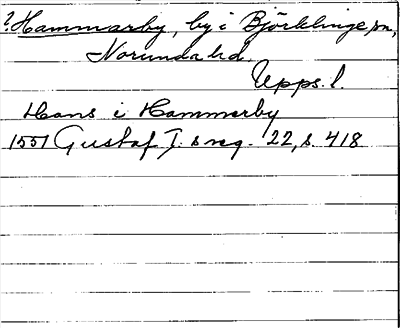 ? Hammarby, by i Björklinge sn,
Norunda hd.
Upps. l.
Hans i Hammerby
1551 Gustaf I.s reg. 22, s. 418